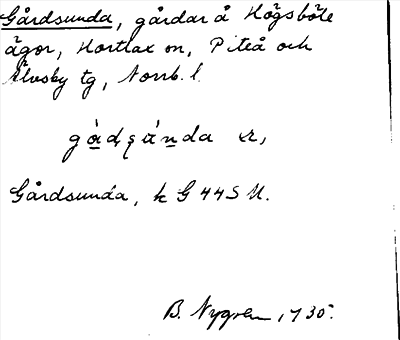 Gårdsunda, gårdar å Högsböle
ägor, Hortlax sn, Piteå och
Älvsby tg, Norrb. l.
Gårdsunda, k G 44 S U.
B. Nygren, 1930.